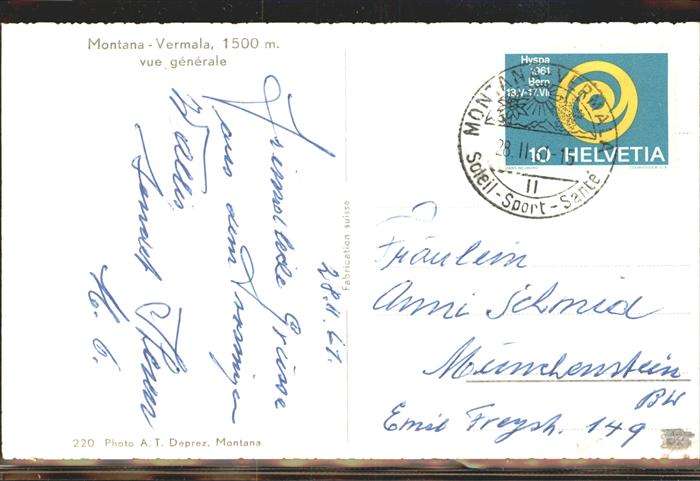 Montana-Vermala, 1500 m.
vue générale
28.II.61.
Freundliche Grüsse
aus dem sonnigen
Wallis
sendet Ihnen
H. G.
220 Photo A. T. Deprez, Montana
Fabrication suisse
Hyspa
1961
Bern
18.V-17.VII.
10 HELVETIA
MONTANA-VERMALA
28.II.61-1
11
Soleil-Sport-Santé
Fräulein
Anni Schmid
Münchenstein
Emil Freystr. 149